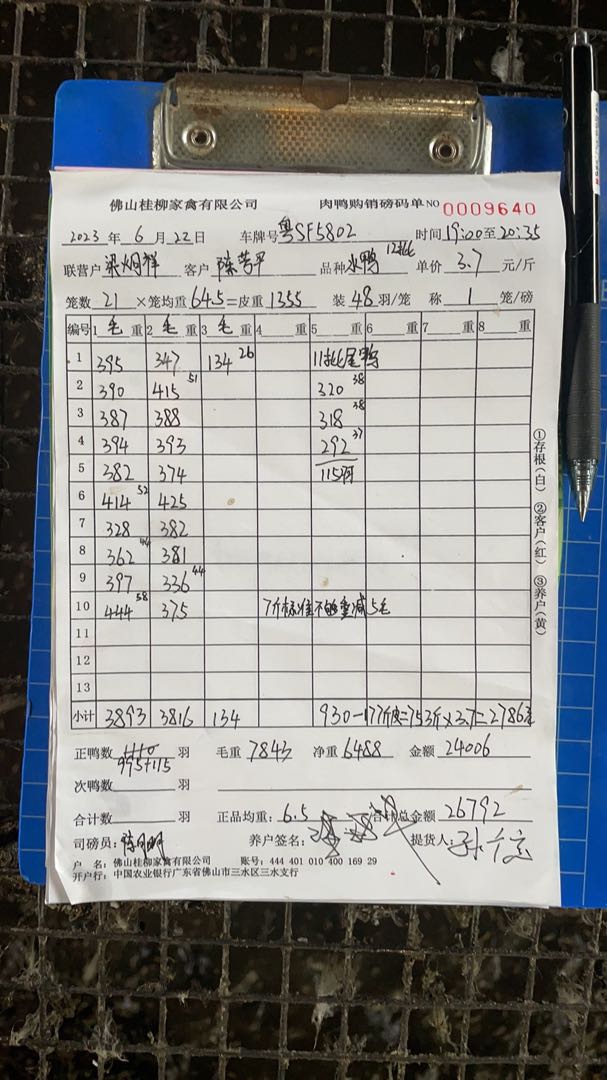 佛山桂柳家禽有限公司 肉鸭购销磅码单 NO 0009640
2023 年 6 月 22 日 车牌号 粤SF5802 时间 19:00 至 20:35
联营户 梁炯祥 客户 陈芳平 品种 水鸭 12批 单价 3.7 元/斤
笼数 21 ×笼均重 64.5 =皮重 1355 装 48 羽/笼 称 1 笼/磅
编号 1 毛 重 2 毛 重 3 毛 重 4 重 5 重 6 重 7 重 8 重
1 395 347 134 26 11批尾鸭
2 390 415 51 320 38
3 387 388 318 38
4 394 393 292 37
5 382 374 115羽
6 414 52 425
7 328 382
8 362 44 381
9 397 336 44
10 444 58 375 7斤标准不够重减5毛
11
12
13
小计 3893 3816 134 930-177斤皮=753斤×3.7=2786元
正鸭数 1110 羽 毛重 7843 净重 6488 金额 24006
995+115
次鸭数 羽
合计数 羽 正品均重: 6.5 合计总金额 26792
司磅员: 养户签名: 提货人:
户 名: 佛山桂柳家禽有限公司 账号: 444 401 010 400 169 29
开户行: 中国农业银行广东省佛山市三水区三水支行
①存根(白) ②客户(红) ③养户(黄)